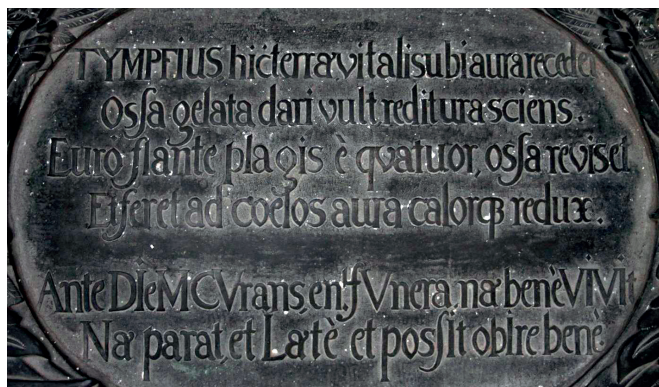 TYMPFIUS hic terræ vitalis ubi aura recedet
Oſſa gelata dari vult reditura sciens.
Euro flante plagis è qvatuor, oſſa reviset
Et feret ad coelos aura calorqꝫ redux.
Ante DIeM CVrans, en, fVnera, næ benè VIVIt
Næ parat, et Lætè et poſſit obIre benè